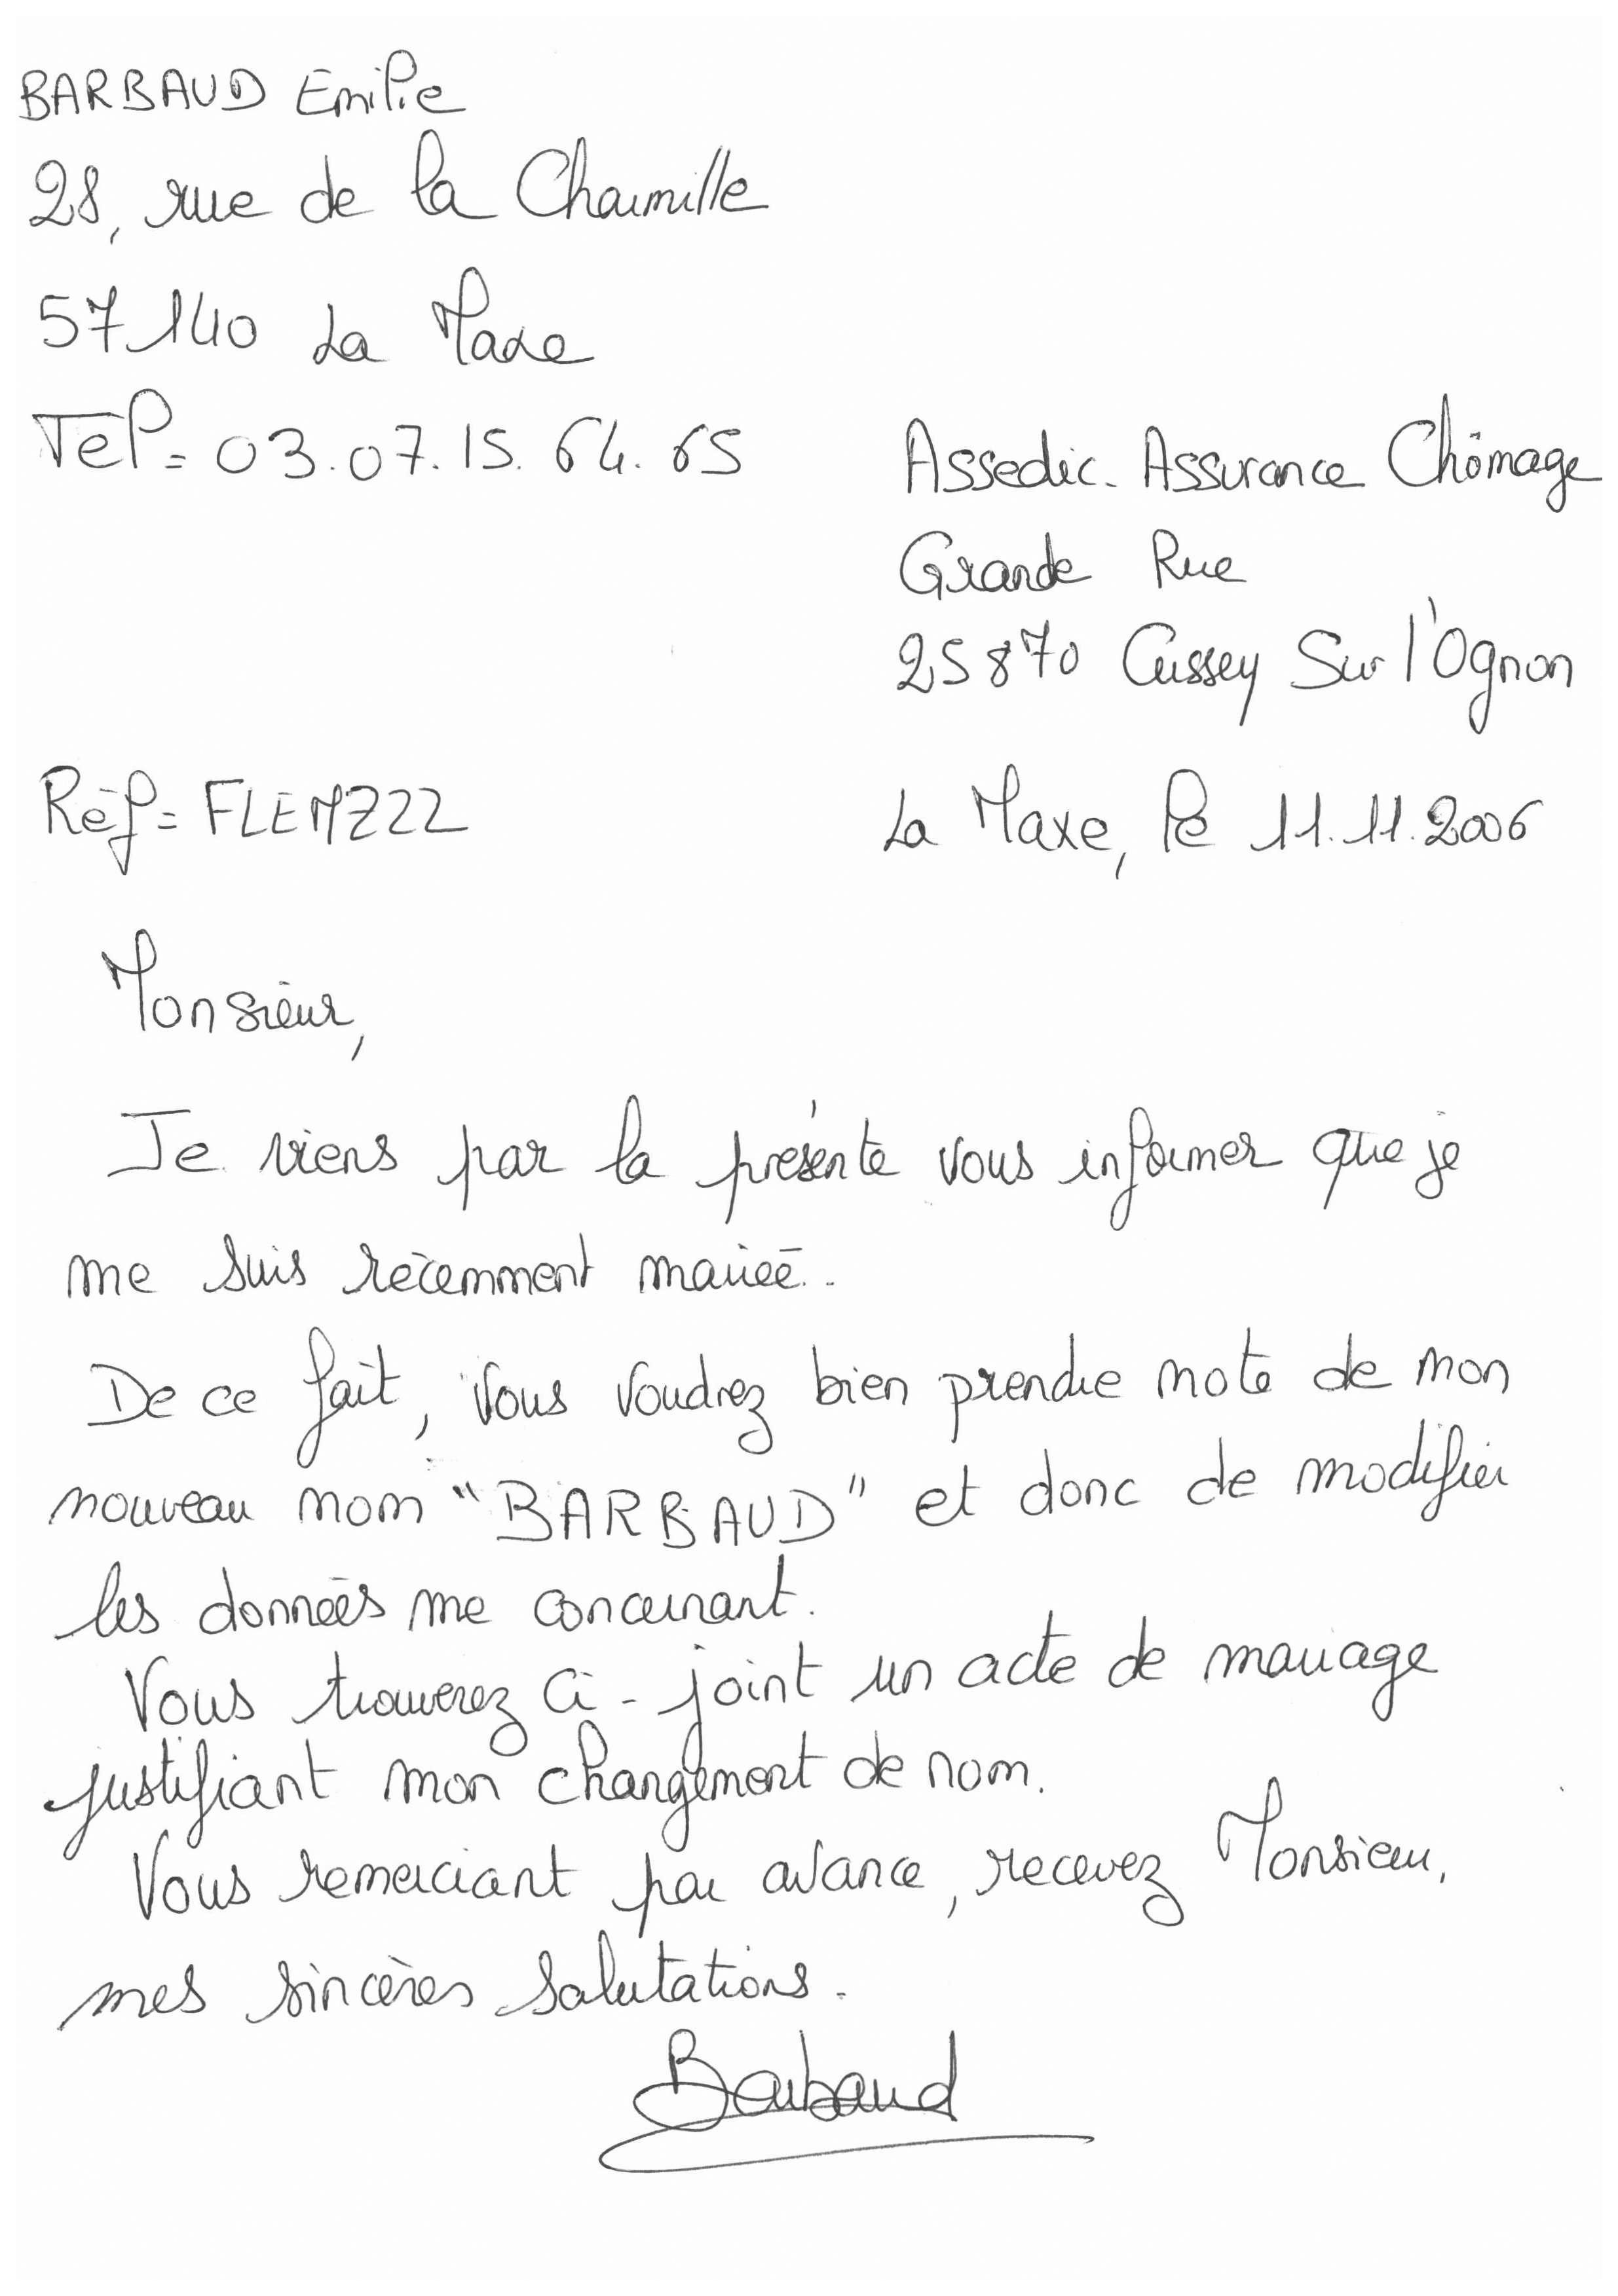 BARBAUD Emilie
28, rue de la Charmille
57140 La Maxe
Tel = 03.07.15.64.65
Assedic. Assurance Chômage
Grande Rue
25870 Cussey Sur l'Ognon
Réf = FLEMZ22
La Maxe, le 11.11.2006
Monsieur,
Je viens par la présente vous informer que je
me suis récemment mariée.
De ce fait, vous voudrez bien prendre note de mon
nouveau nom "BARBAUD" et donc de modifier
les données me concernant.
Vous trouverez ci-joint un acte de mariage
justifiant mon changement de nom.
Vous remerciant par avance, recevez Monsieur,
mes sincères salutations.
Barbaud